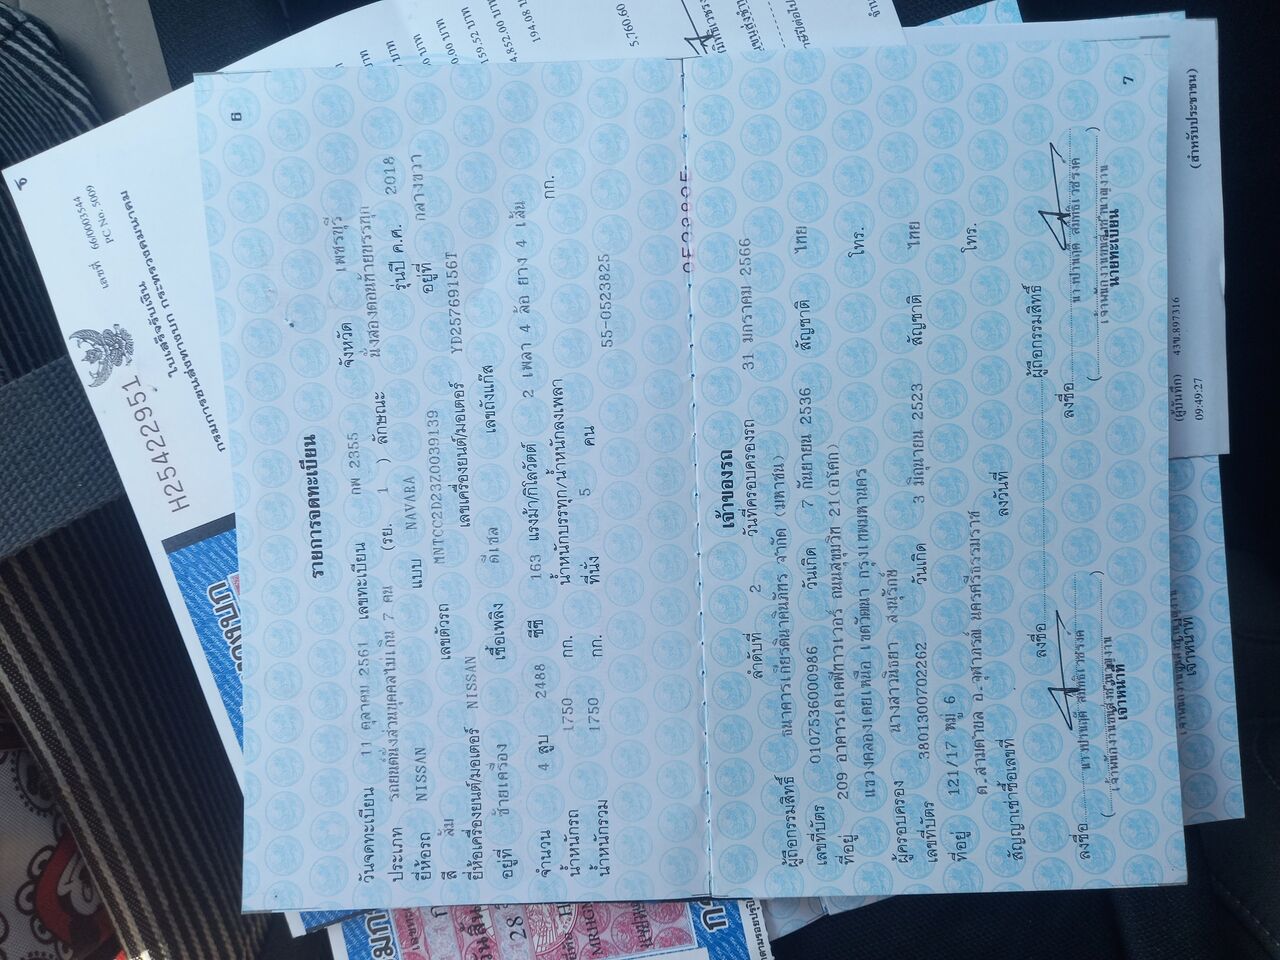 6
รายการจดทะเบียน
วันจดทะเบียน 11 ตุลาคม 2561 เลขทะเบียน กพ 2355 จังหวัด เพชรบุรี
ประเภท รถยนต์นั่งส่วนบุคคลไม่เกิน 7 คน (รย. 1 ) ลักษณะ นั่งสองตอนท้ายบรรทุก
ยี่ห้อรถ NISSAN แบบ NAVARA รุ่นปี ค.ศ. 2018
สี ส้ม เลขตัวรถ MNTCC2D23Z0039139 อยู่ที่ กลางขวา
ยี่ห้อเครื่องยนต์/มอเตอร์ NISSAN เลขเครื่องยนต์/มอเตอร์ YD25769156T
อยู่ที่ ซ้ายเครื่อง เชื้อเพลิง ดีเซล เลขถังแก๊ส
จำนวน 4 สูบ 2488 ซีซี 163 แรงม้า/กิโลวัตต์ 2 เพลา 4 ล้อ ยาง 4 เส้น
น้ำหนักรถ 1750 กก. น้ำหนักบรรทุก/น้ำหนักลงเพลา กก.
น้ำหนักรวม 1750 กก. ที่นั่ง 5 คน 55-0523825
7
เจ้าของรถ
ลำดับที่ 2 วันที่ครอบครองรถ 31 มกราคม 2566
ผู้ถือกรรมสิทธิ์ ธนาคารเกียรตินาคินภัทร จำกัด (มหาชน)
เลขที่บัตร 0107536000986 วันเกิด 7 กันยายน 2536 สัญชาติ ไทย
ที่อยู่ 209 อาคารเคเคพีทาวเวอร์ ถนนสุขุมวิท 21(อโศก) โทร.
แขวงคลองเตยเหนือ เขตวัฒนา กรุงเทพมหานคร
ผู้ครอบครอง นางสาวนิธยา สงนุรักษ์
เลขที่บัตร 3801300702262 วันเกิด 3 มิถุนายน 2523 สัญชาติ ไทย
ที่อยู่ 121/17 หมู่ 6 โทร.
ต.สามตำบล อ.จุฬาภรณ์ นครศรีธรรมราช
สัญญาเช่าซื้อเลขที่ ลงวันที่
ลงชื่อ ผู้ถือกรรมสิทธิ์
ลงชื่อ
ลงชื่อ
เจ้าหน้าที่
นายทะเบียน
ช
เลขที่ 660003544
PC No. 5009
ใบเสร็จรับเงิน
กรมการขนส่งทางบก กระทรวงคมนาคม
H254229951
159.52 บาท
4,852.00 บาท
194.08
5,760.60
(ผู้บันทึก) 43ข.897316
09:49:27
(สำหรับประชาชน)
เจ้าหน้าที่
28